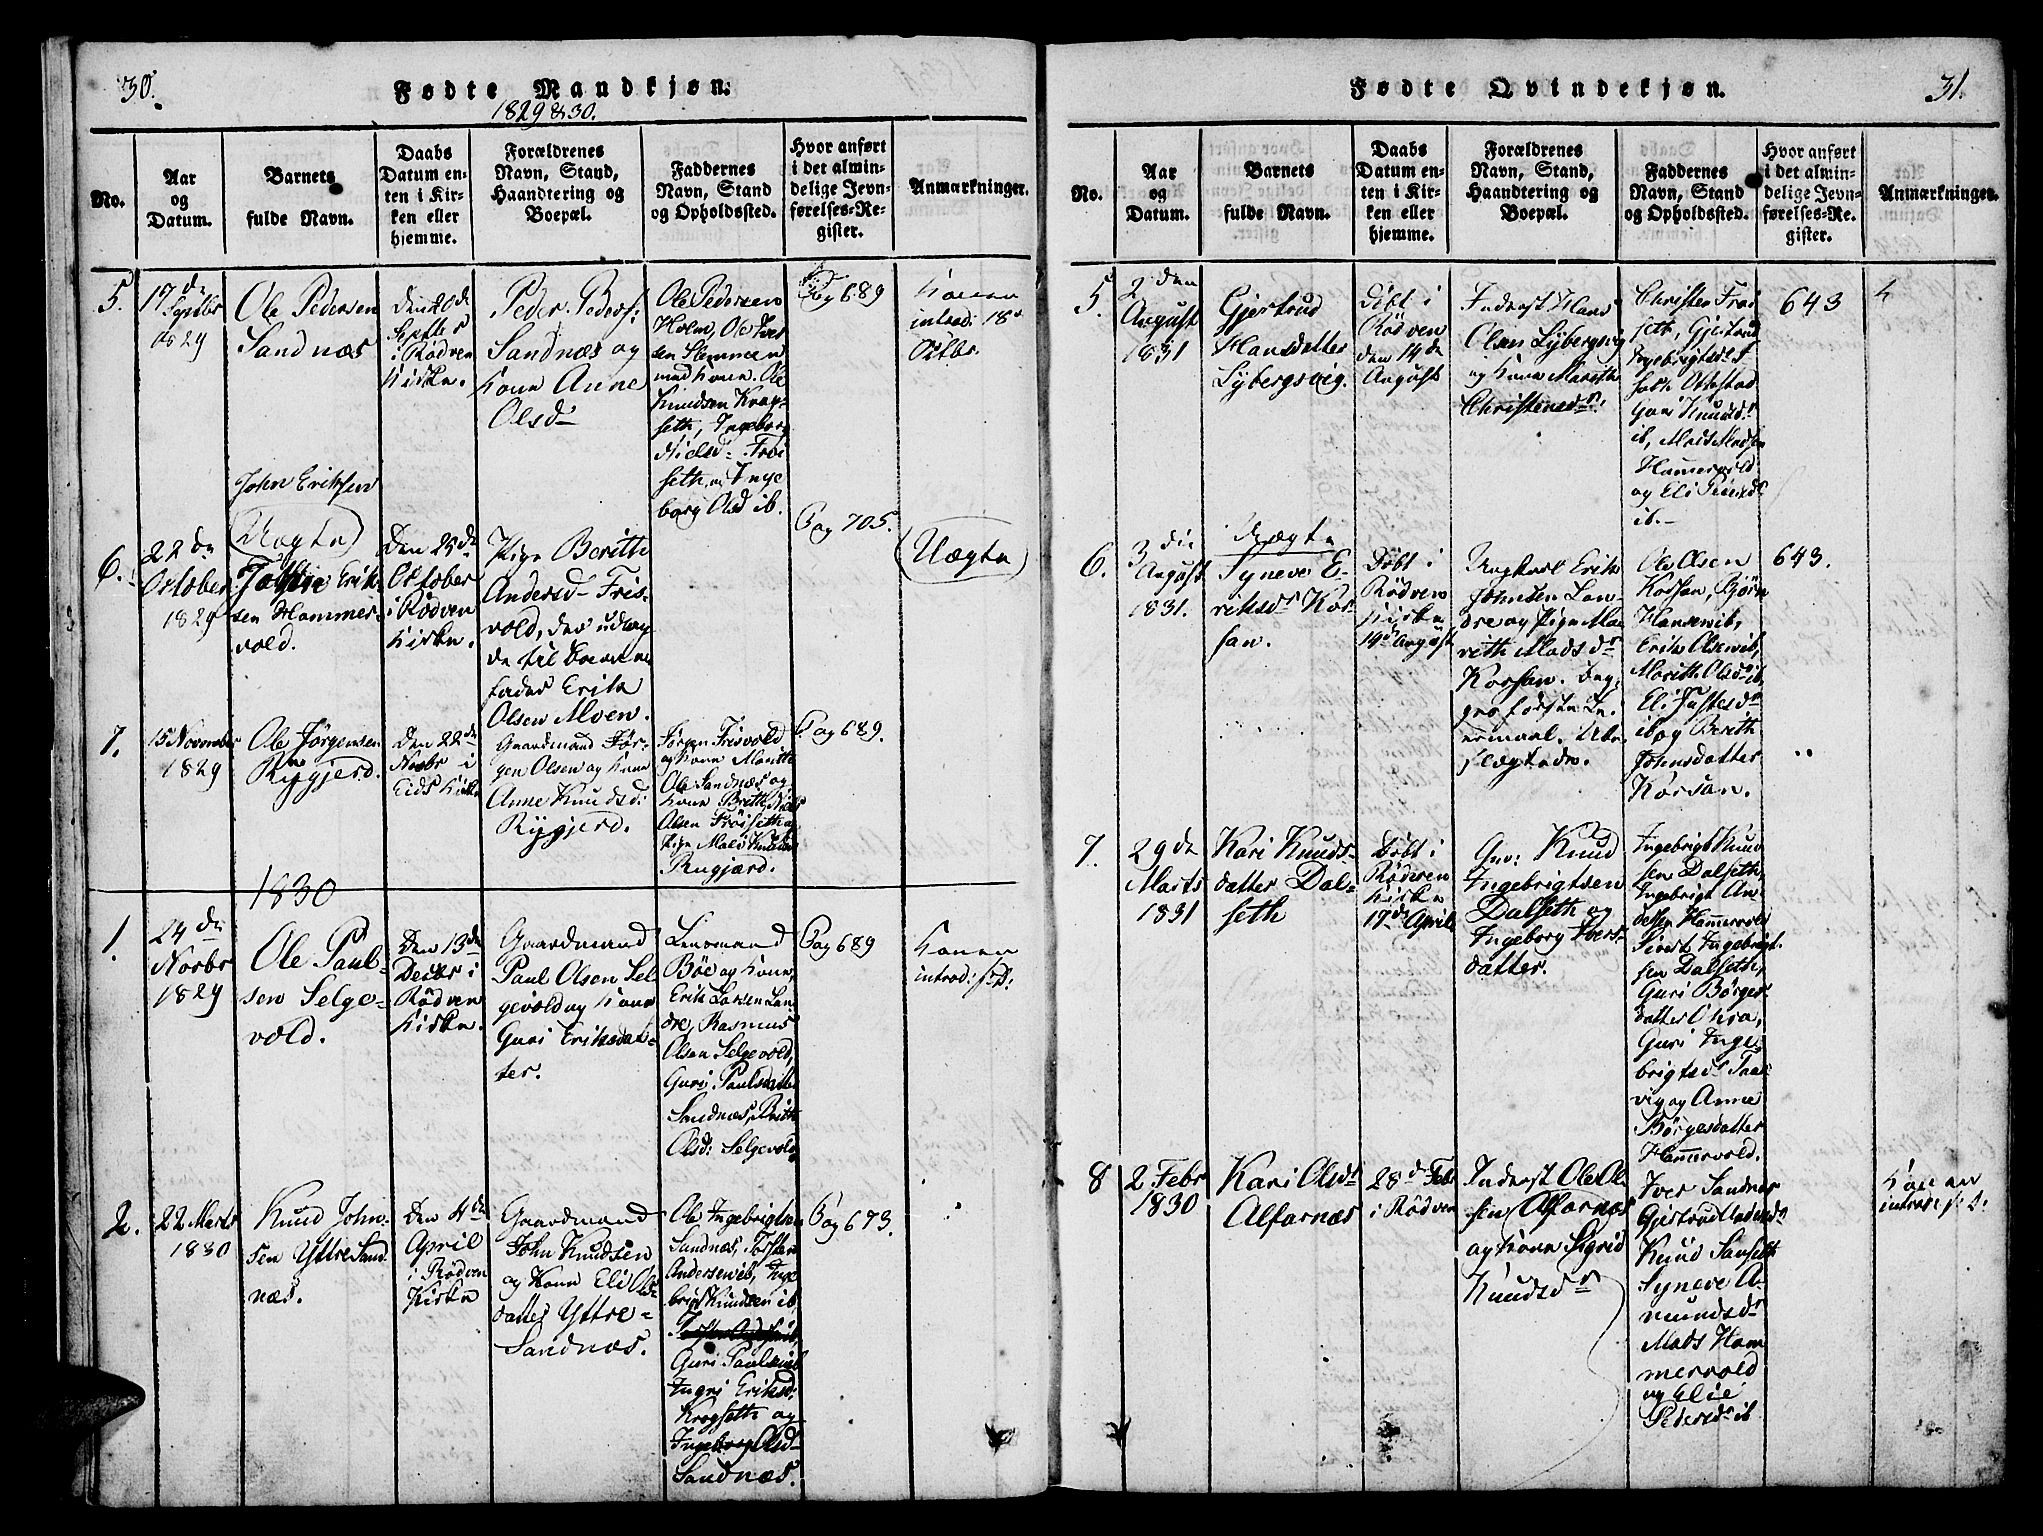 30.
Fødte Mandkjøn.
1829 & 30.
No.
Aar
og
Datum.
Barnets
fulde Navn.
Daabs
Datum en-
ten i Kir-
ken eller
hjemme.
Forældrenes
Navn, Stand,
Haandtering og
Boepæl.
Faddernes
Navn, Stand
og Opholdssted.
Hvor anført
i det almin-
delige Jevn-
førelses-Re-
gister.
Anmærkninger.
5.
17 de
Septbr
1829
Ole Pedersen
Sandnæs
Den 20 de
Septbr
i Rødven
Kirke.
Peder Peders:
Sandnæs og
Kone Anne
Olsd
Ole Pedersen
Holm, Ole Iver
sen Slemmen
med Kone. Ole
Knudsen Krog-
seth, Ingeborg
Nielsd Frøi
seth og Inge
borg Olsd ib.
Pag 689
Konen
introd: 18 de
Octbr.
6.
22 de
October
1829
John Eriksen
(Uægte)
Erik
sen Hammer-
vold.
Den 25 de
October
i Rødven
Kirke.
Pige Berithe
Andersd Fris-
vold, der udlag-
de til Barne
fader Erik
Olsen Moen.
Pag 705.
(Uægte)
7.
15 November
1829
Ole Jørgensen
Rygjerd.
Den 22 de
Novbr i
Eids Kirke
Gaardmand Jør-
gen Olsen og Kone
Anne Knudsd:
Rygjerd.
Jørgen Frisvold
og Kone Marith
Ole Sandnæs og
Kone Brith, Niels
Olsen Frøiseth og
Pige Mali Knudsd
Rugjærd.
Pag 689.
1830
1.
24 de
Novbr
1829
Ole Paul-
sen Selge-
vold.
Den 13 de
Decbr i
Rødven
Kirke.
Gaardmand
Paul Olsen Sel-
gevold og Kone
Guri Eriksdat-
ter.
Lensmand
Bøe og Kone,
Erik Larsen Lan-
dre, Rasmus
Olsen Selgevold,
Guri Paulsdatter
Sandnæs, Brith
Olsd: Selgevold
Pag 689
Konen
introd: s: D:
2.
22 Marts
1830
Knud John-
sen Yttre Sand
næs.
Den 4 de
April
i Rødven
Kirke
Gaardmand
John Knudsen
og Kone Eli Ols-
datter Yttre-
Sandnæs.
Ole Ingebrigtsen
Sandnæs, Torsten
Andersen ib, Inge
brigt Knudsen ib,
Guri Paulsd ib
Ingri Eriksd:
Krogseth og
Ingeborg Olsd
Sandnæs.
Pag 673.
Fødte Qvindekjøn.
31.
No.
Aar
og
Datum.
Barnets
fulde Navn.
Daabs
Datum en-
ten i Kir-
ken eller
hjemme.
Forældrenes
Navn, Stand,
Haandtering og
Boepæl.
Faddernes
Navn, Stand
og Opholdssted.
Hvor anført
i det almin-
delige Jevn-
førelses-Re-
gister.
Anmærkninger.
5.
2 den
August
1831
Gjertrud
Hansdatter
Lybergsvig.
Døbt i
Rødven
den 14 de
August
Inderst Hans
Olsen Lybergsvig
og Kone Marith
Christensdr.
Christen Frøi
seth, Gjertrud
Ingebrigtsd
Ottestad
Guri Knudsd
ib, Mads Madsen
Hammervold
og Eli Pedersd
ib.
643
6.
3 die
August
1831.
Uægte
Syneve E-
riksdr Kor-
san.
Døbt i
Rødven
Kirke
14 de August
Ungkarl Erik
Johnsen Lan-
dre og Pige Ma-
rith Madsdr
Korsan. Beg-
ges første Lei
ermaal. Ube-
slægtede.
Ole Olsen
Korsan, Bjørn
Hansen ib,
Erik Olsen ib,
Marith Olsd ib,
Eli Justesdr
ib og Berith
Johnsdatter
Korsan.
643.
7.
29 de
Marts
1831
Kari Knuds-
datter Dal-
seth
Døbt i
Rødven
Kirke
17 de April
Gm: Knud
Ingebrigtsen
Dalseth og
Ingeborg Ivers-
datter.
Ingebrigt Knud
sen Dalseth,
Ingebrigt An-
dersen Hammervold
Sivert Ingebrigt-
sen Dalseth,
Guri Børges
datter
Guri Inge-
brigtsdr Taa-
vig og Anne
Børgesdatter
Hammervold.
8
2 Febr
1830
Kari Olsdr
Alfarnæs
28 de Febr
i Rødven
Inderst Ole Ol
sen Alfarnæs
og Kone Sigrid
Knudsdr
Iver Sandnæs
Gjertrud
Knud Sanseth
Syneve A-
mundsdr
Mads Ham
mervold
og Elie
Pedersdr ib
Konen
introd: s: D: